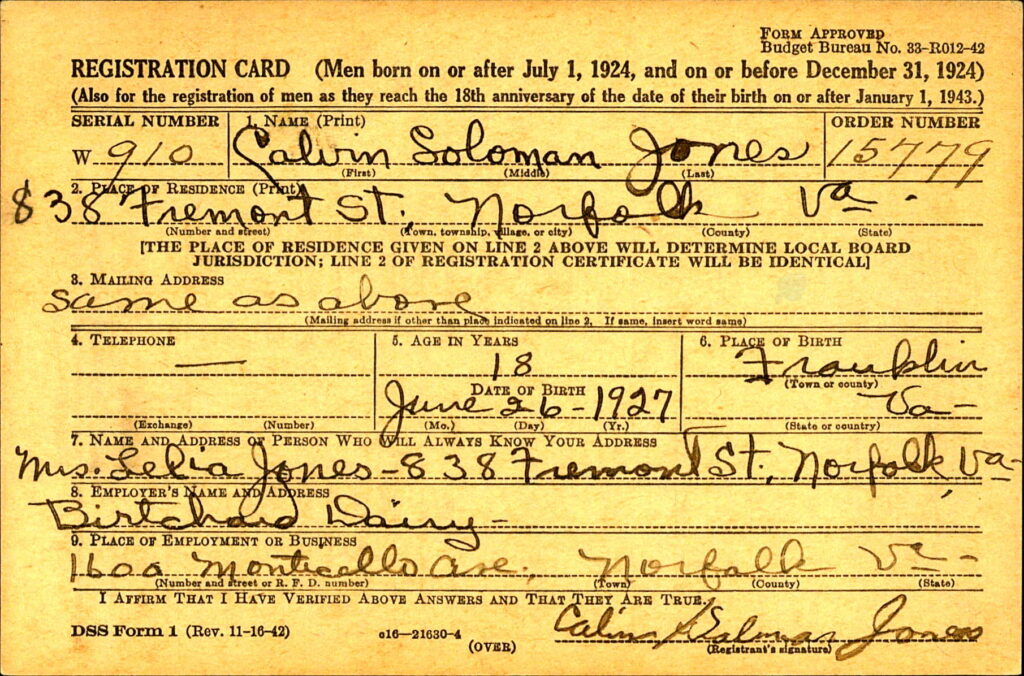 FORM APPROVED
Budget Bureau No. 33-R012-42
REGISTRATION CARD (Men born on or after July 1, 1924, and on or before December 31, 1924)
(Also for the registration of men as they reach the 18th anniversary of the date of their birth on or after January 1, 1943.)
SERIAL NUMBER 1. NAME (Print) ORDER NUMBER
W 910 Calvin Soloman Jones 15779
(First) (Middle) (Last)
2. PLACE OF RESIDENCE (Print)
838 Fremont St. Norfolk Va.
(Number and street) (Town, township, village, or city) (County) (State)
[THE PLACE OF RESIDENCE GIVEN ON LINE 2 ABOVE WILL DETERMINE LOCAL BOARD
JURISDICTION; LINE 2 OF REGISTRATION CERTIFICATE WILL BE IDENTICAL]
3. MAILING ADDRESS
same as above
(Mailing address if other than place indicated on line 2. If same, insert word same)
4. TELEPHONE 5. AGE IN YEARS 6. PLACE OF BIRTH
— 18 Franklin
(Town or county)
DATE OF BIRTH
June 26-1927 Va-
(Exchange) (Number) (Mo.) (Day) (Yr.) (State or country)
7. NAME AND ADDRESS OF PERSON WHO WILL ALWAYS KNOW YOUR ADDRESS
Mrs. Lelia Jones-838 Fremont St., Norfolk, Va-
8. EMPLOYER'S NAME AND ADDRESS
Birtcherd Dairy-
9. PLACE OF EMPLOYMENT OR BUSINESS
1600 Monticello Ave. Norfolk Va-
(Number and street or R. F. D. number) (Town) (County) (State)
I AFFIRM THAT I HAVE VERIFIED ABOVE ANSWERS AND THAT THEY ARE TRUE.
DSS Form 1 (Rev. 11-16-42) c16-21630-4 Jones
(OVER) (Registrant's signature)